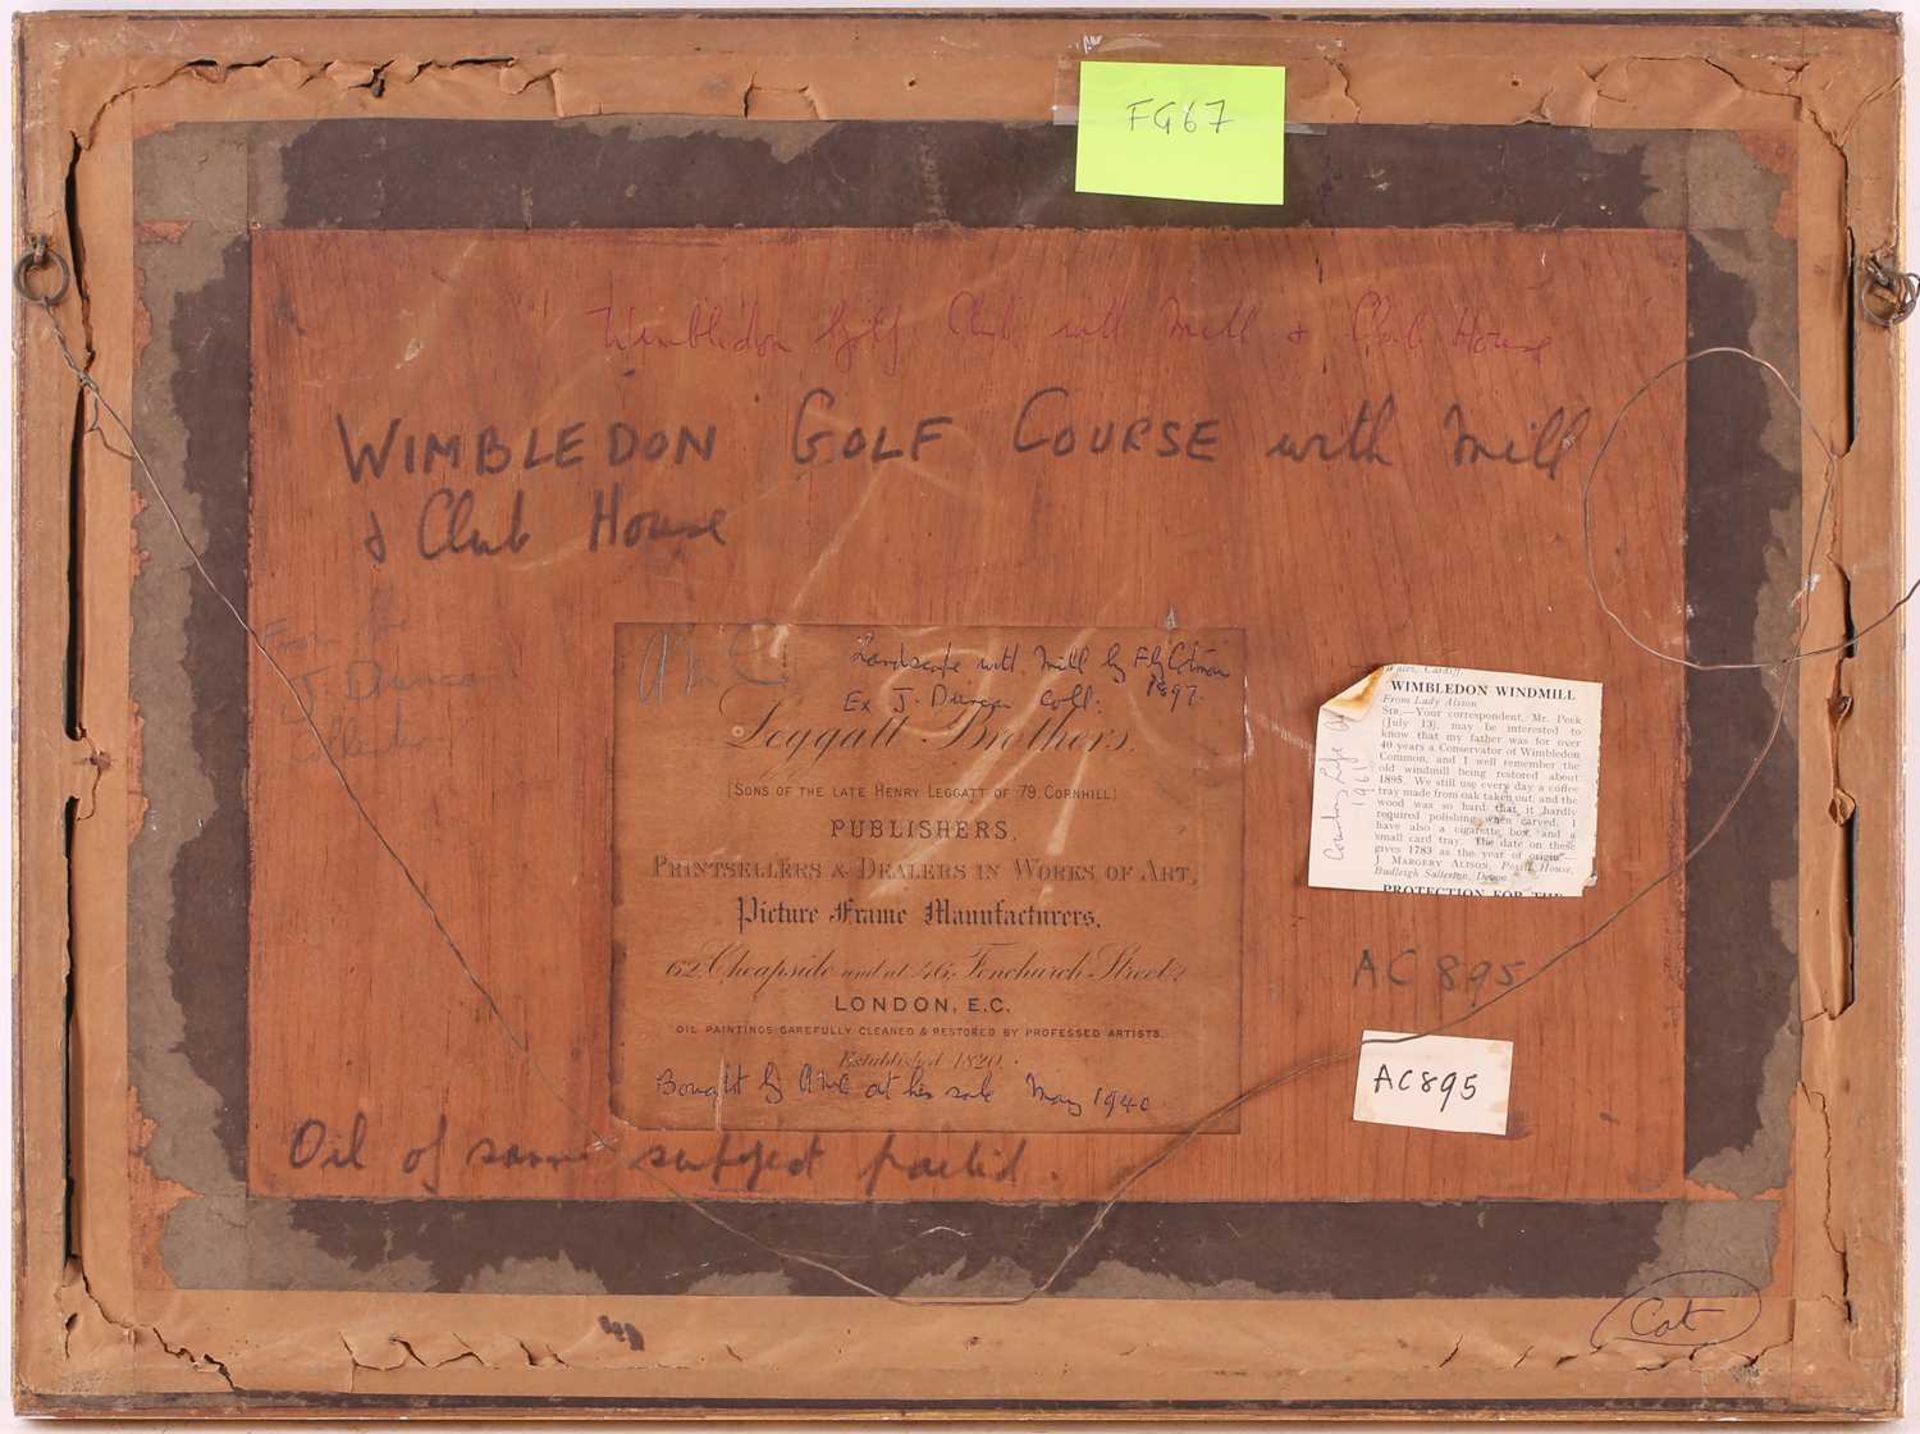 FG67
Wimbledon Golf Club with Mill & Club House
WIMBLEDON GOLF COURSE with Mill
& Club House
From the
J. Duncan
Collection
Landscape with Mill by
Ex J. Duncan Coll: 1897.
Leggatt Brothers,
(SONS OF THE LATE HENRY LEGGATT OF 79, CORNHILL)
PUBLISHERS,
PRINTSELLERS & DEALERS IN WORKS OF ART,
Picture Frame Manufacturers,
62 Cheapside and at 46, Fenchurch Street,
LONDON, E.C.
OIL PAINTINGS CAREFULLY CLEANED & RESTORED BY PROFESSED ARTISTS.
Established 1820.
Bought by AMC at his sale May 1940
Oil of same subject
Wales, Cardiff
WIMBLEDON WINDMILL
From Lady Alison
SIR,—Your correspondent, Mr. Peek
(July 13), may be interested to
know that my father was for over
40 years a Conservator of Wimbledon
Common, and I well remember the
old windmill being restored about
1895. We still use every day a coffee
tray made from oak taken out, and the
wood was so hard that it hardly
required polishing when carved. I
have also a cigarette box and a
small card tray. The date on these
gives 1783 as the year of origin—
J. MARGERY ALISON, House,
Budleigh Salterton, Devon
PROTECTION FOR THE
Country Life
1961
AC 895
AC895
Cat